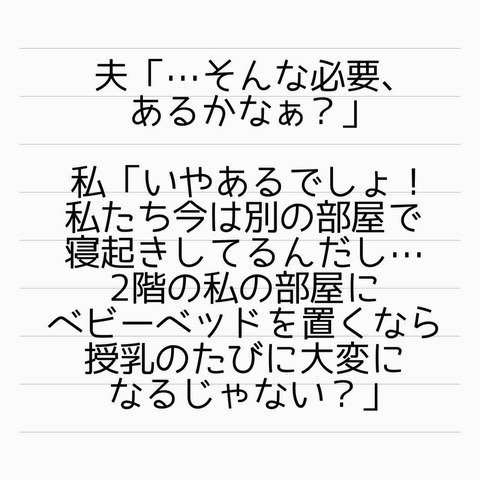 夫「…そんな必要、
あるかなぁ？」
私「いやあるでしょ！
私たち今は別の部屋で
寝起きしてるんだし…
2階の私の部屋に
ベビーベッドを置くなら
授乳のたびに大変に
なるじゃない？」